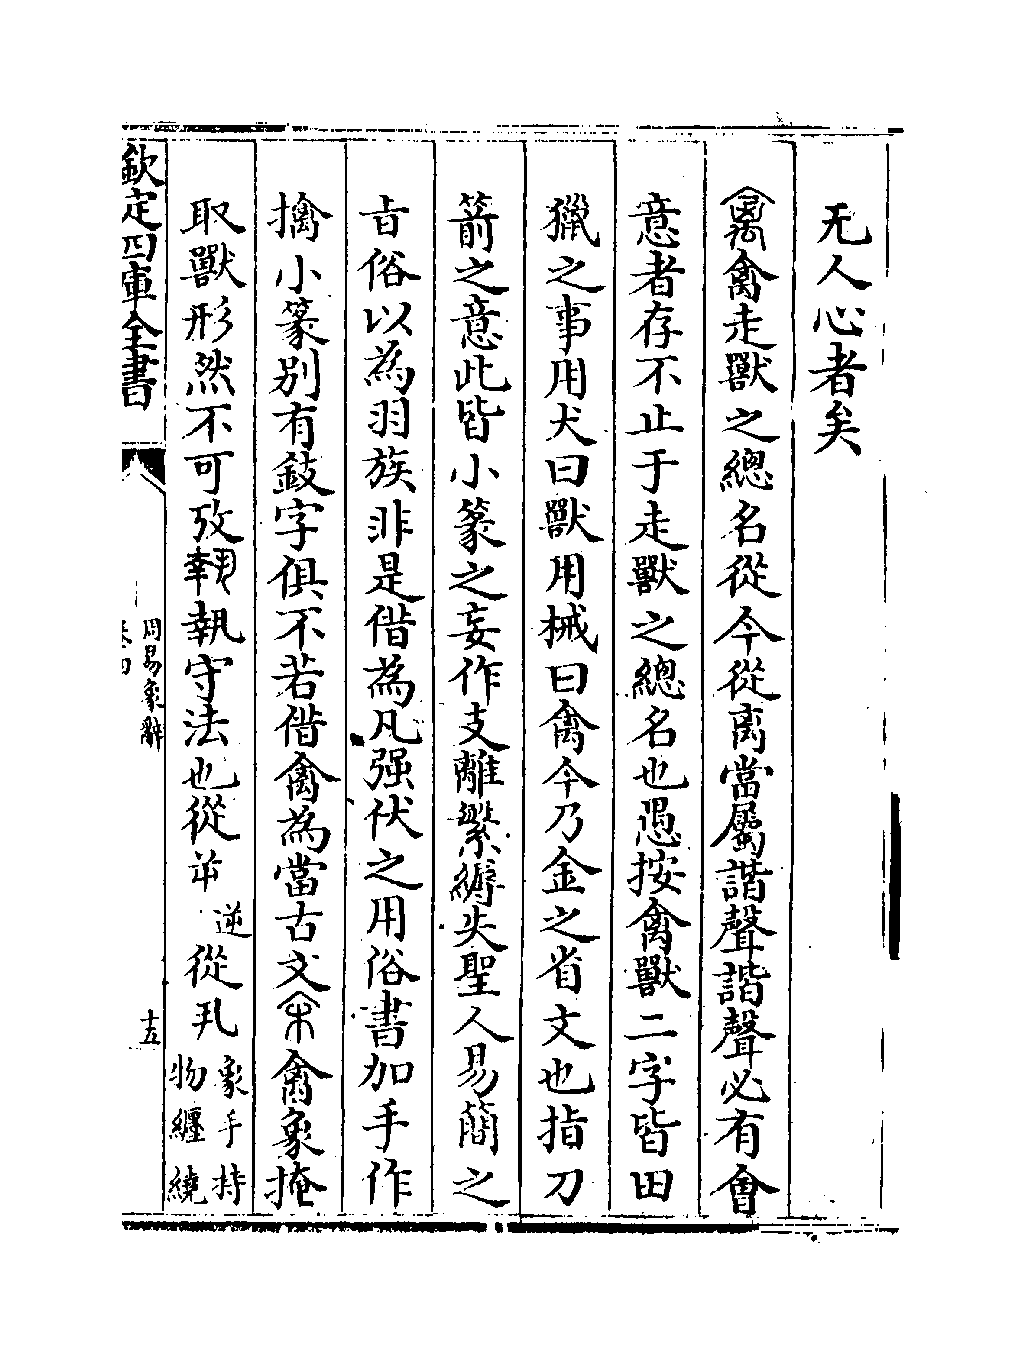 无人心者矣
禽走獸之總名從今從离當屬諧聲諧聲必有會
意者存不止于走獸之總名也愚按禽獸二字皆田
獵之事用犬曰獸用械曰禽今乃金之省文也指刀
箭之意此皆小篆之妄作支離繁縟失聖人易簡之
㫖俗以為羽族非是借為凡强伏之用俗書加手作
擒小篆别有䥆字俱不若借禽為當古文禽象掩
取獸形然不可攷執守法也從逆從丮象手持
物纏繞
欽定四庫全書
周易象辭
卷四
十五